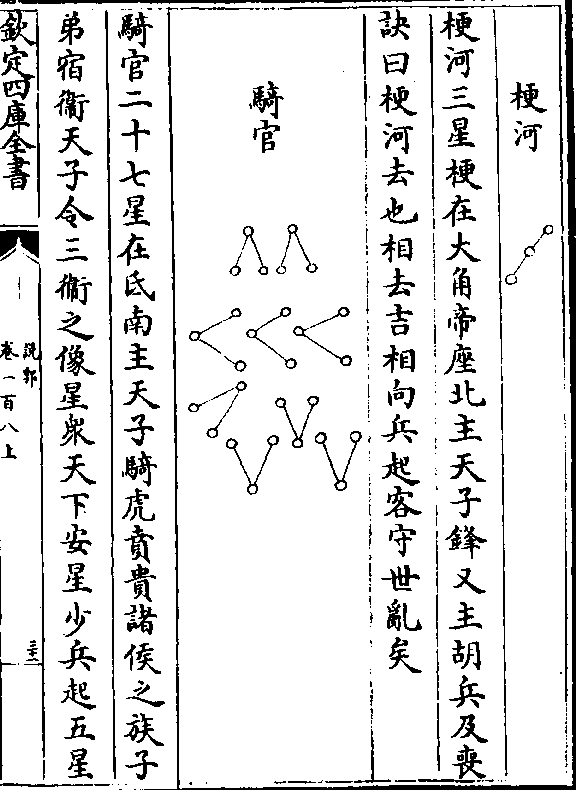 梗河
梗河三星梗在大角帝座北主天子鋒又主胡兵及喪
訣曰梗河去也相去吉相向兵起客守世亂矣
騎官
騎官二十七星在氐南主天子騎虎賁貴諸侯之族子
弟宿衞天子令三衞之像星衆天下安星少兵起五星
欽定四庫全書
說郛
卷一百八上
三十二